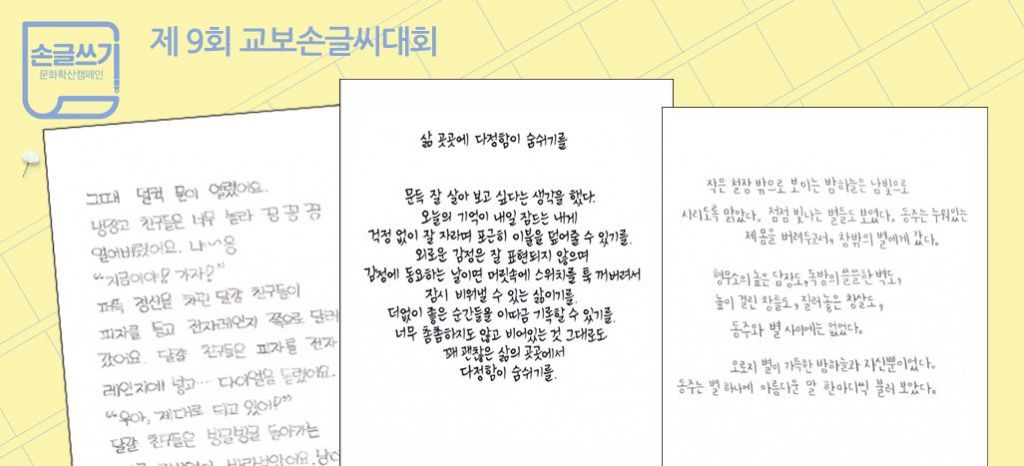 손글쓰기
문화확산캠페인
제 9회 교보손글씨대회
그때 덜컥 문이 열렸어요.
냉장고 친구들은 너무 놀라 꽁꽁꽁
얼어버렸어요.
"지금이야! 가자!"
퍼뜩 정신을 차린 달걀 친구들이
피자를 들고 전자레인지 쪽으로 달려
갔어요. 달걀 친구들은 피자를 전자
레인지에 넣고… 다이얼을 돌렸어요.
"우아, 제대로 되고 있어!"
달걀 친구들은 빙글빙글 돌아가는
삶 곳곳에 다정함이 숨쉬기를
문득 잘 살아 보고 싶다는 생각을 했다.
오늘의 기억이 내일 잠드는 내게
걱정 없이 잘 자라며 포근히 이불을 덮어줄 수 있기를.
외로운 감정은 잘 표현되지 않으며
감정에 동요하는 날이면 머릿속에 스위치를 툭 꺼버려서
잠시 비워낼 수 있는 삶이기를.
더없이 좋은 순간들을 이따금 기록할 수 있기를.
너무 촘촘하지도 않고 비어있는 것 그대로도
꽤 괜찮은 삶의 곳곳에서
다정함이 숨쉬기를.
작은 철창 밖으로 보이는 밤하늘은 남빛으로
시리도록 맑았다. 점점 빛나는 별들도 보였다. 동주는 누워있는
제 몸을 버려두고서, 창밖의 별에게 갔다.
형무소의 높은 담장도, 독방의 쓸쓸한 벽도,
높이 걸린 창틀도, 질러놓은 창살도,
동주와 별 사이에는 없었다.
오로지 별이 가득한 밤하늘과 자신뿐이었다.
동주는 별 하나에 아름다운 말 한마디씩 불러 보았다.